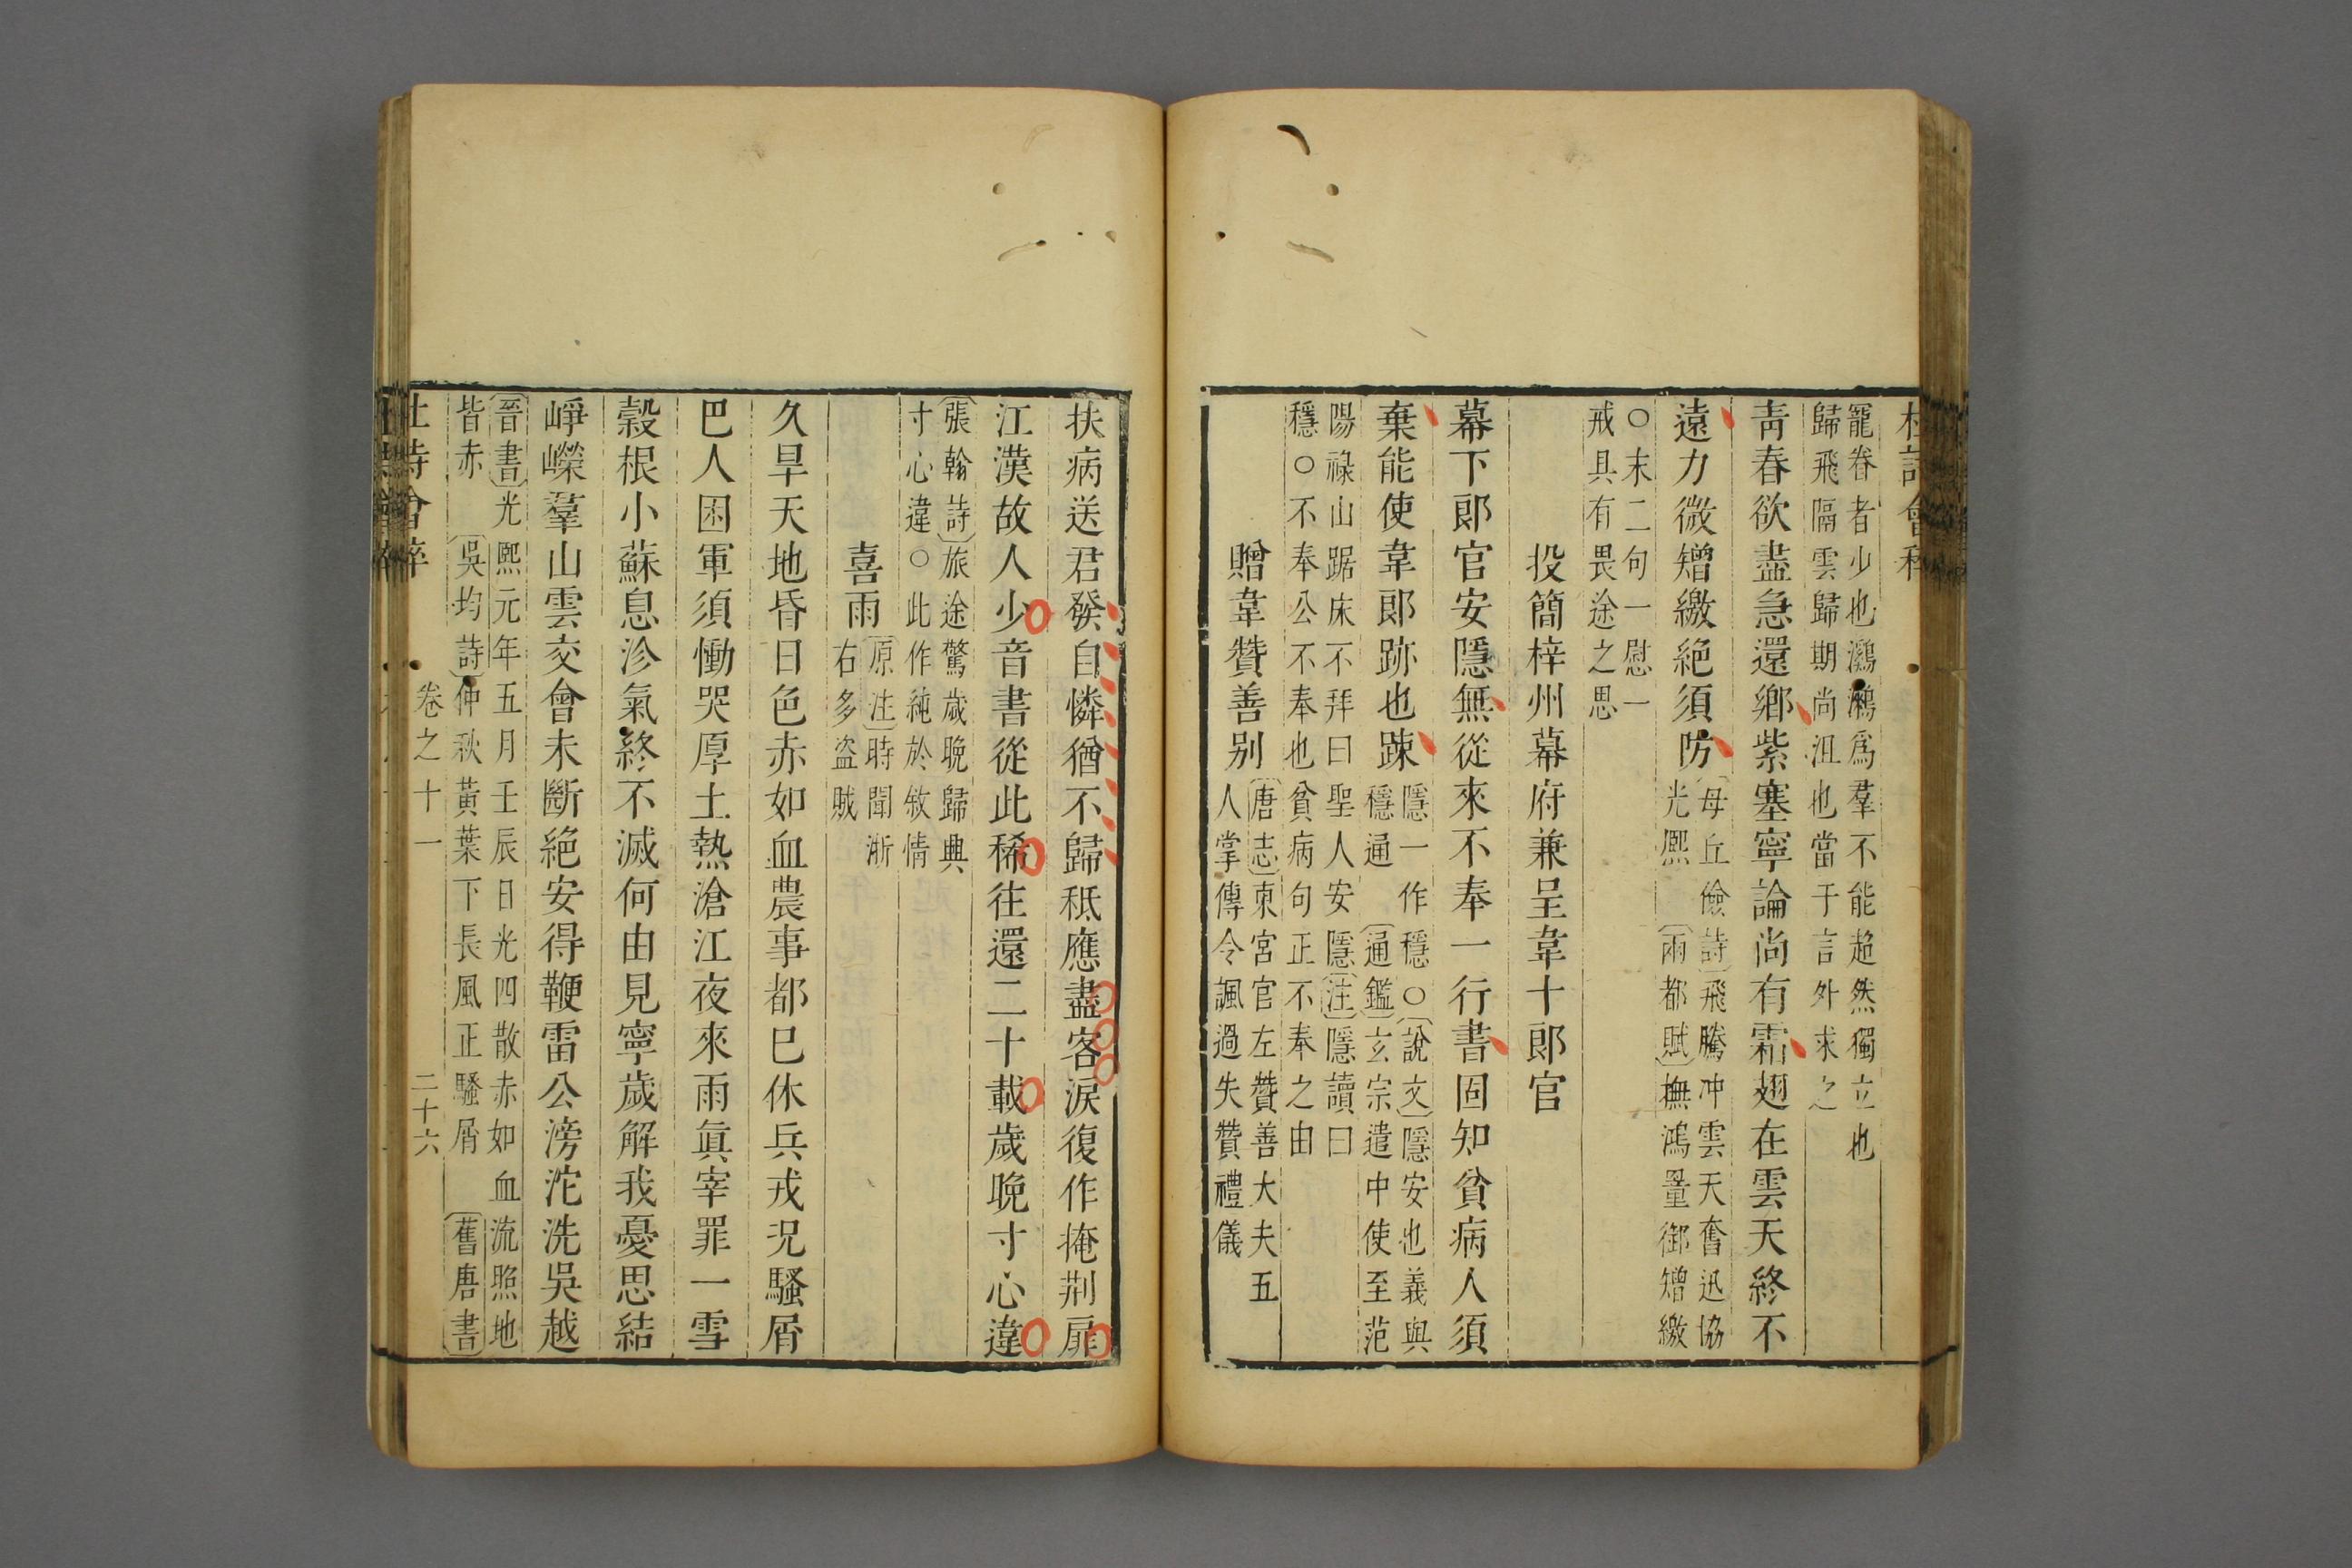 寵眷者少也鸂鶒爲羣不能超然獨立也
歸飛隔雲歸期尚沮也當于言外求之
靑春欲盡急還鄉紫塞寧論尚有霜翅在雲天終不
遠力微矰繳絕須防
母丘儉詩飛騰冲雲天奮迅協
光熈 兩都賦撫鴻罿御矰繳
○末二句一慰一
戒具有畏途之思
投簡梓州幕府兼呈韋十郎官
幕下郎官安隱無從來不奉一行書固知貧病人須
棄能使韋郎跡也踈
隱一作穩○說文隱安也義與
穩通 通鑑玄宗遣中使至范
陽祿山踞床不拜曰聖人安隱注隱讀曰
穩○不奉公不奉也貧病句正不奉之由
贈韋贊善别
唐志東宮官左贊善大夫五
人掌傳令諷過失贊禮儀
扶病送君發自憐猶不歸秪應盡客淚復作掩荆扉
江漢故人少音書從此稀往還二十載歲晚寸心違
張翰詩旅途驚歲晚歸典
寸心違○此作純於敘情
喜雨
原注時聞浙
右多盗賊
久旱天地昏日色赤如血農事都巳休兵戎况騷屑
巴人困軍須慟哭厚土熱滄江夜來雨眞宰罪一雪
穀根小蘇息沴氣終不滅何由見寧歲解我憂思結
崢嶸羣山雲交會未斷絕安得鞭雷公滂沱洗吳越
晉書光熙元年五月壬辰日光四散赤如血流照地
皆赤 吳均詩仲秋黃葉下長風正騷屑 舊唐書
卷之十一 二十六